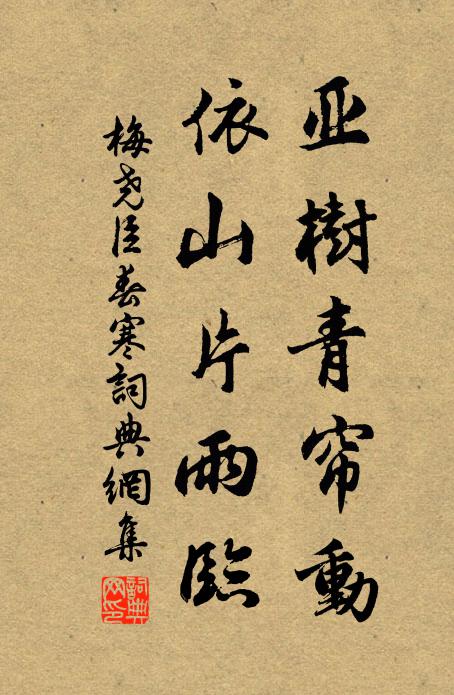 亚樹青帘動
依山片雨臨
梅尧臣春寒詞典網集
詞典网印